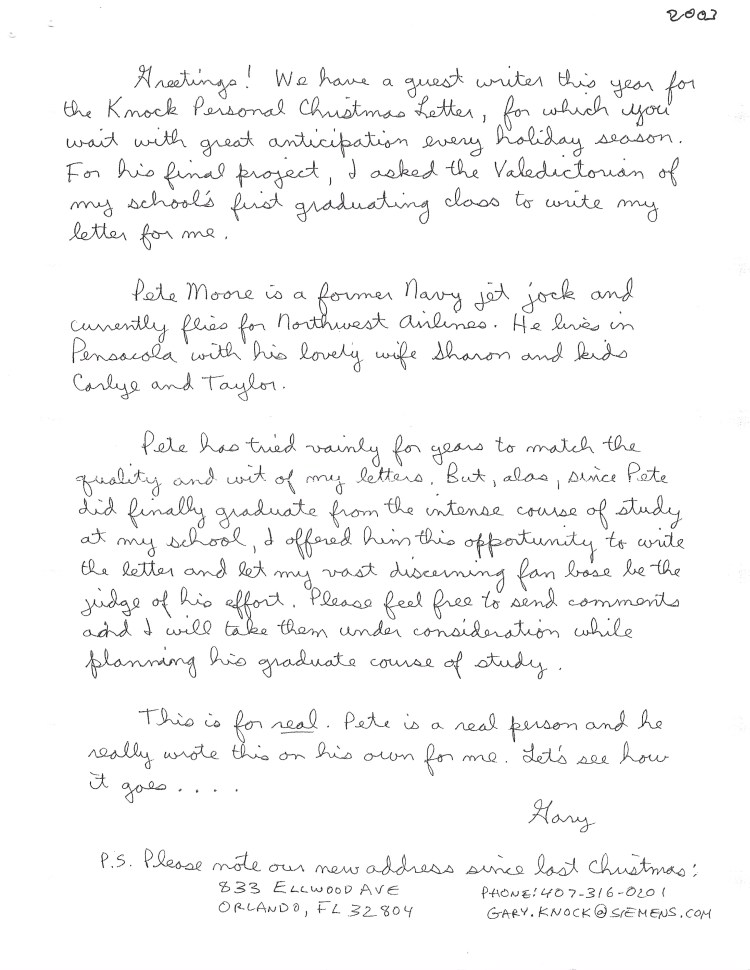 2003
Greetings! We have a guest writer this year for
the Knock Personal Christmas Letter, for which you
wait with great anticipation every holiday season.
For his final project, I asked the Valedictorian of
my school's first graduating class to write my
letter for me.
Pete Moore is a former Navy jet jock and
currently flies for Northwest Airlines. He lives in
Pensacola with his lovely wife Sharon and kids
Carlye and Taylor.
Pete has tried vainly for years to match the
quality and wit of my letters. But, alas, since Pete
did finally graduate from the intense course of study
at my school, I offered him this opportunity to write
the letter and let my vast discerning fan base be the
judge of his effort. Please feel free to send comments
and I will take them under consideration while
planning his graduate course of study.
This is for real. Pete is a real person and he
really wrote this on his own for me. Let's see how
it goes . . . .
Gary
P.S. Please note our new address since last Christmas:
833 ELLWOOD AVE PHONE: 407-316-0201
ORLANDO, FL 32804 GARY.KNOCK@SIEMENS.COM